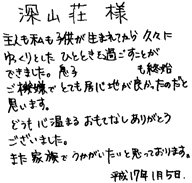 深山荘 様
主人も私も子供が生まれてから久々に
ゆっくりとした ひとときを過ごすことが
できました。息子 も終始
ご機嫌で とても居心地が良かったのだと
思います。
どうも心温まる おもてなしありがとう
ございました。
また家族でうかがいたいと思っております。
平成17年1月5日.